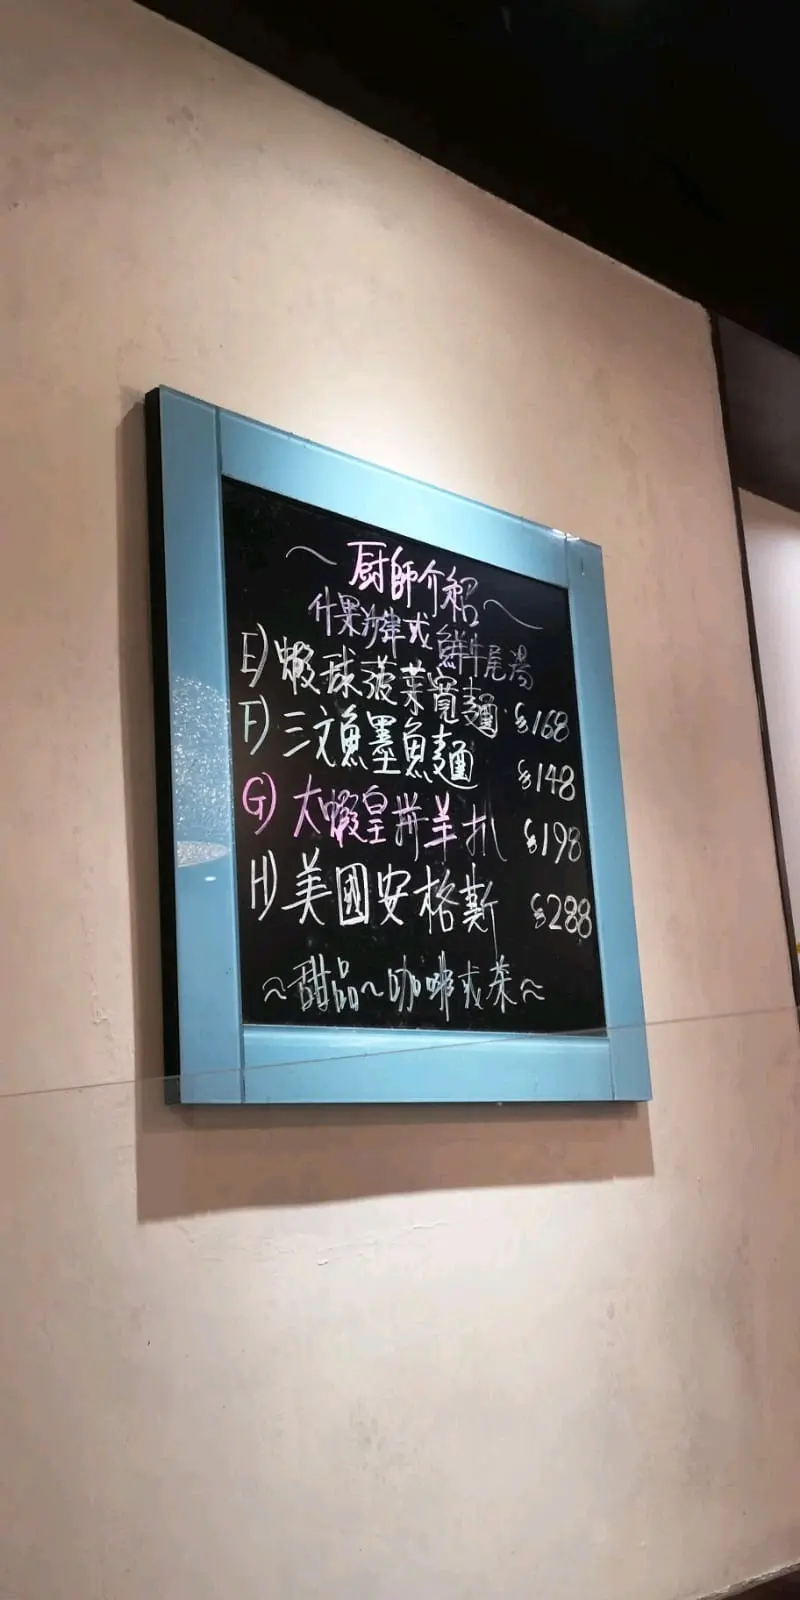 ~ 厨師介紹 ~
什果沙律或鮮牛尾湯
E) 蝦球菠菜寬麵 $168
F) 三文魚墨魚麵 $148
G) 大蝦皇拼羊扒 $198
H) 美國安格斯 $288
~甜品~咖啡或茶~